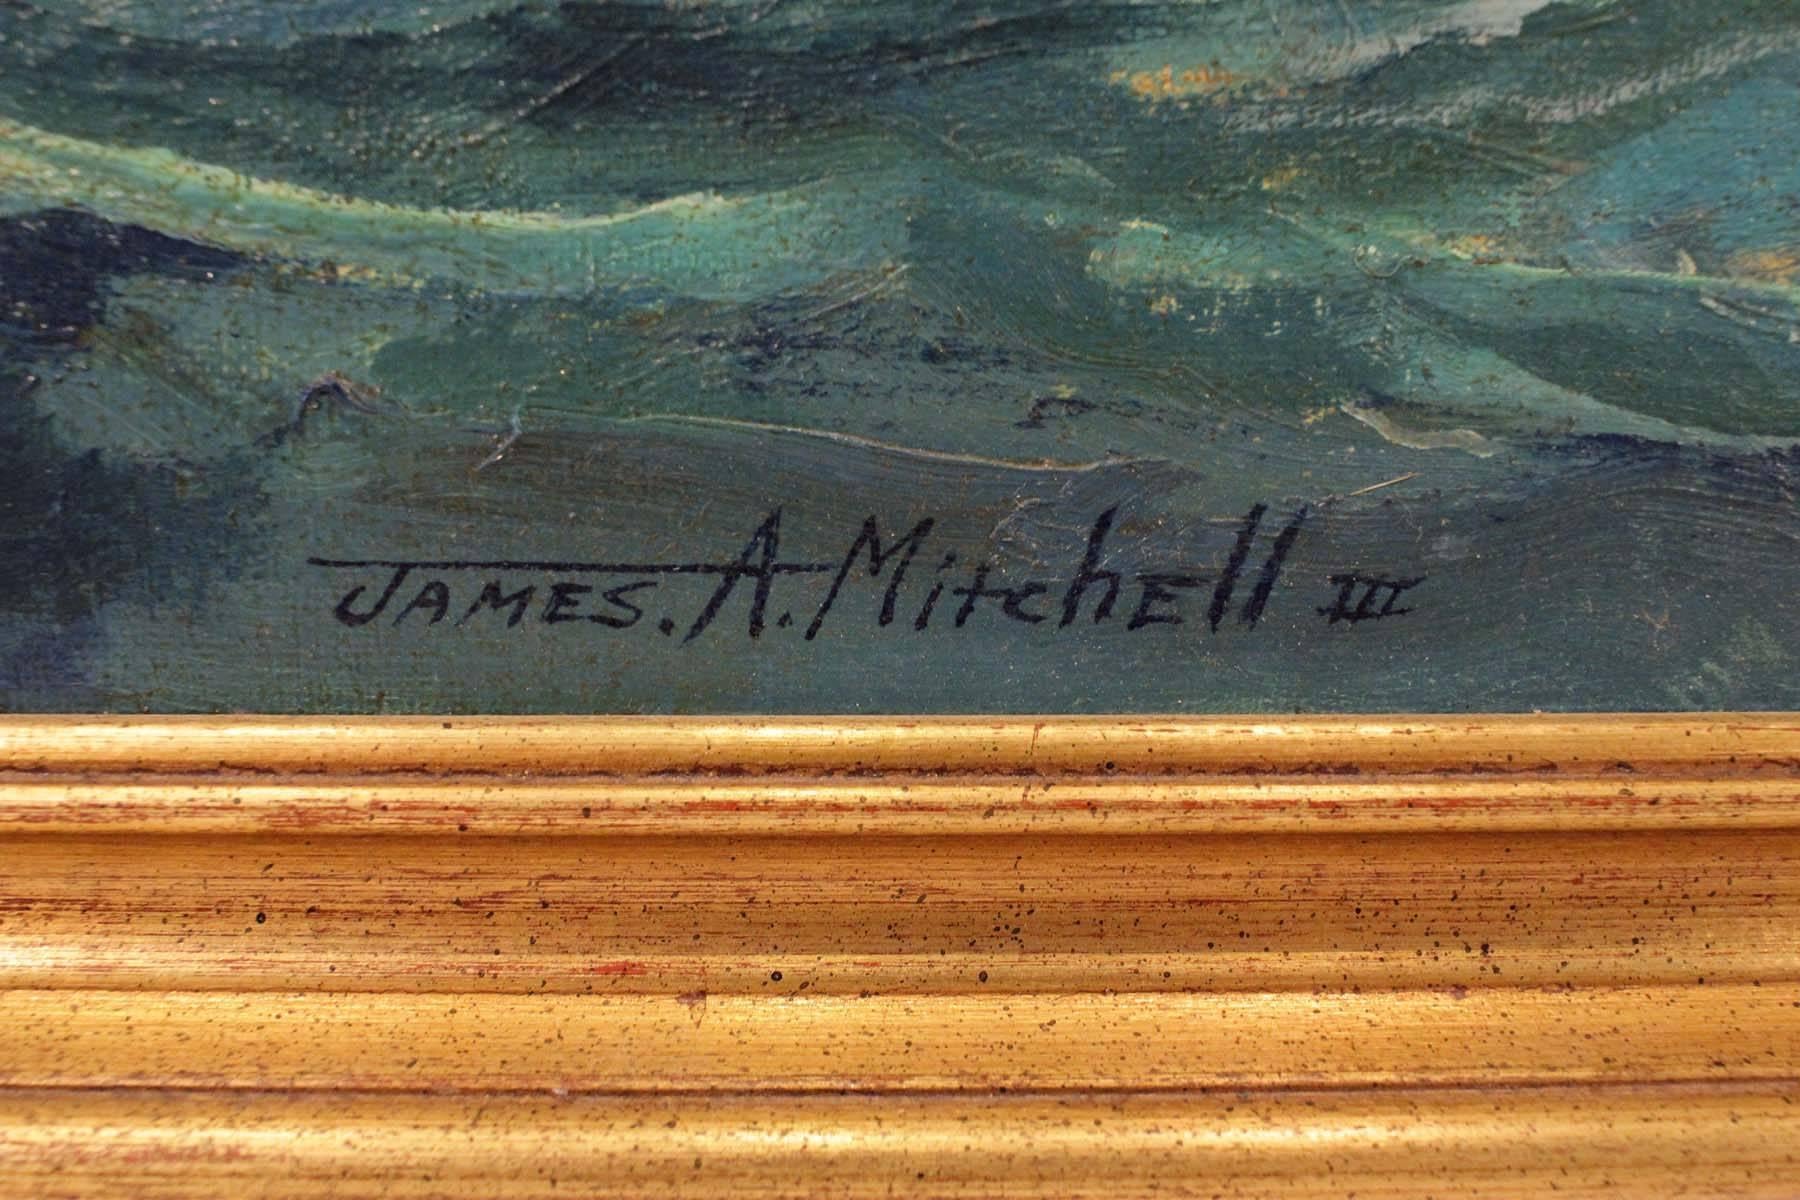 JAMES. A. MitchEll III